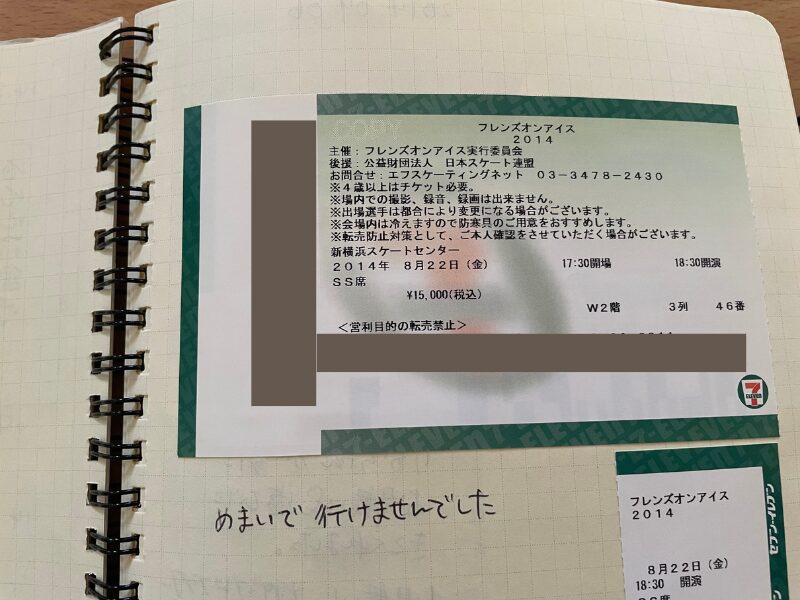 フレンズオンアイス
２０１４
主催：フレンズオンアイス実行委員会
後援：公益財団法人　日本スケート連盟
お問合せ：エフスケーティングネット　０３－３４７８－２４３０
※４歳以上はチケット必要。
※場内での撮影、録音、録画は出来ません。
※出場選手は都合により変更になる場合がございます。
※会場内は冷えますので防寒具のご用意をおすすめします。
※転売防止対策として、ご本人確認をさせていただく場合がございます。
新横浜スケートセンター
２０１４年　８月２２日（金）　17:30開場　18:30開演
ＳＳ席
¥15,000(税込)
Ｗ２階　３列　４６番
＜営利目的の転売禁止＞
7
ELEVEN
めまいで 行けませんでした
フレンズオンアイス
２０１４
８月２２日（金）
18:30　開演
ＳＳ席
セブン-イレブン